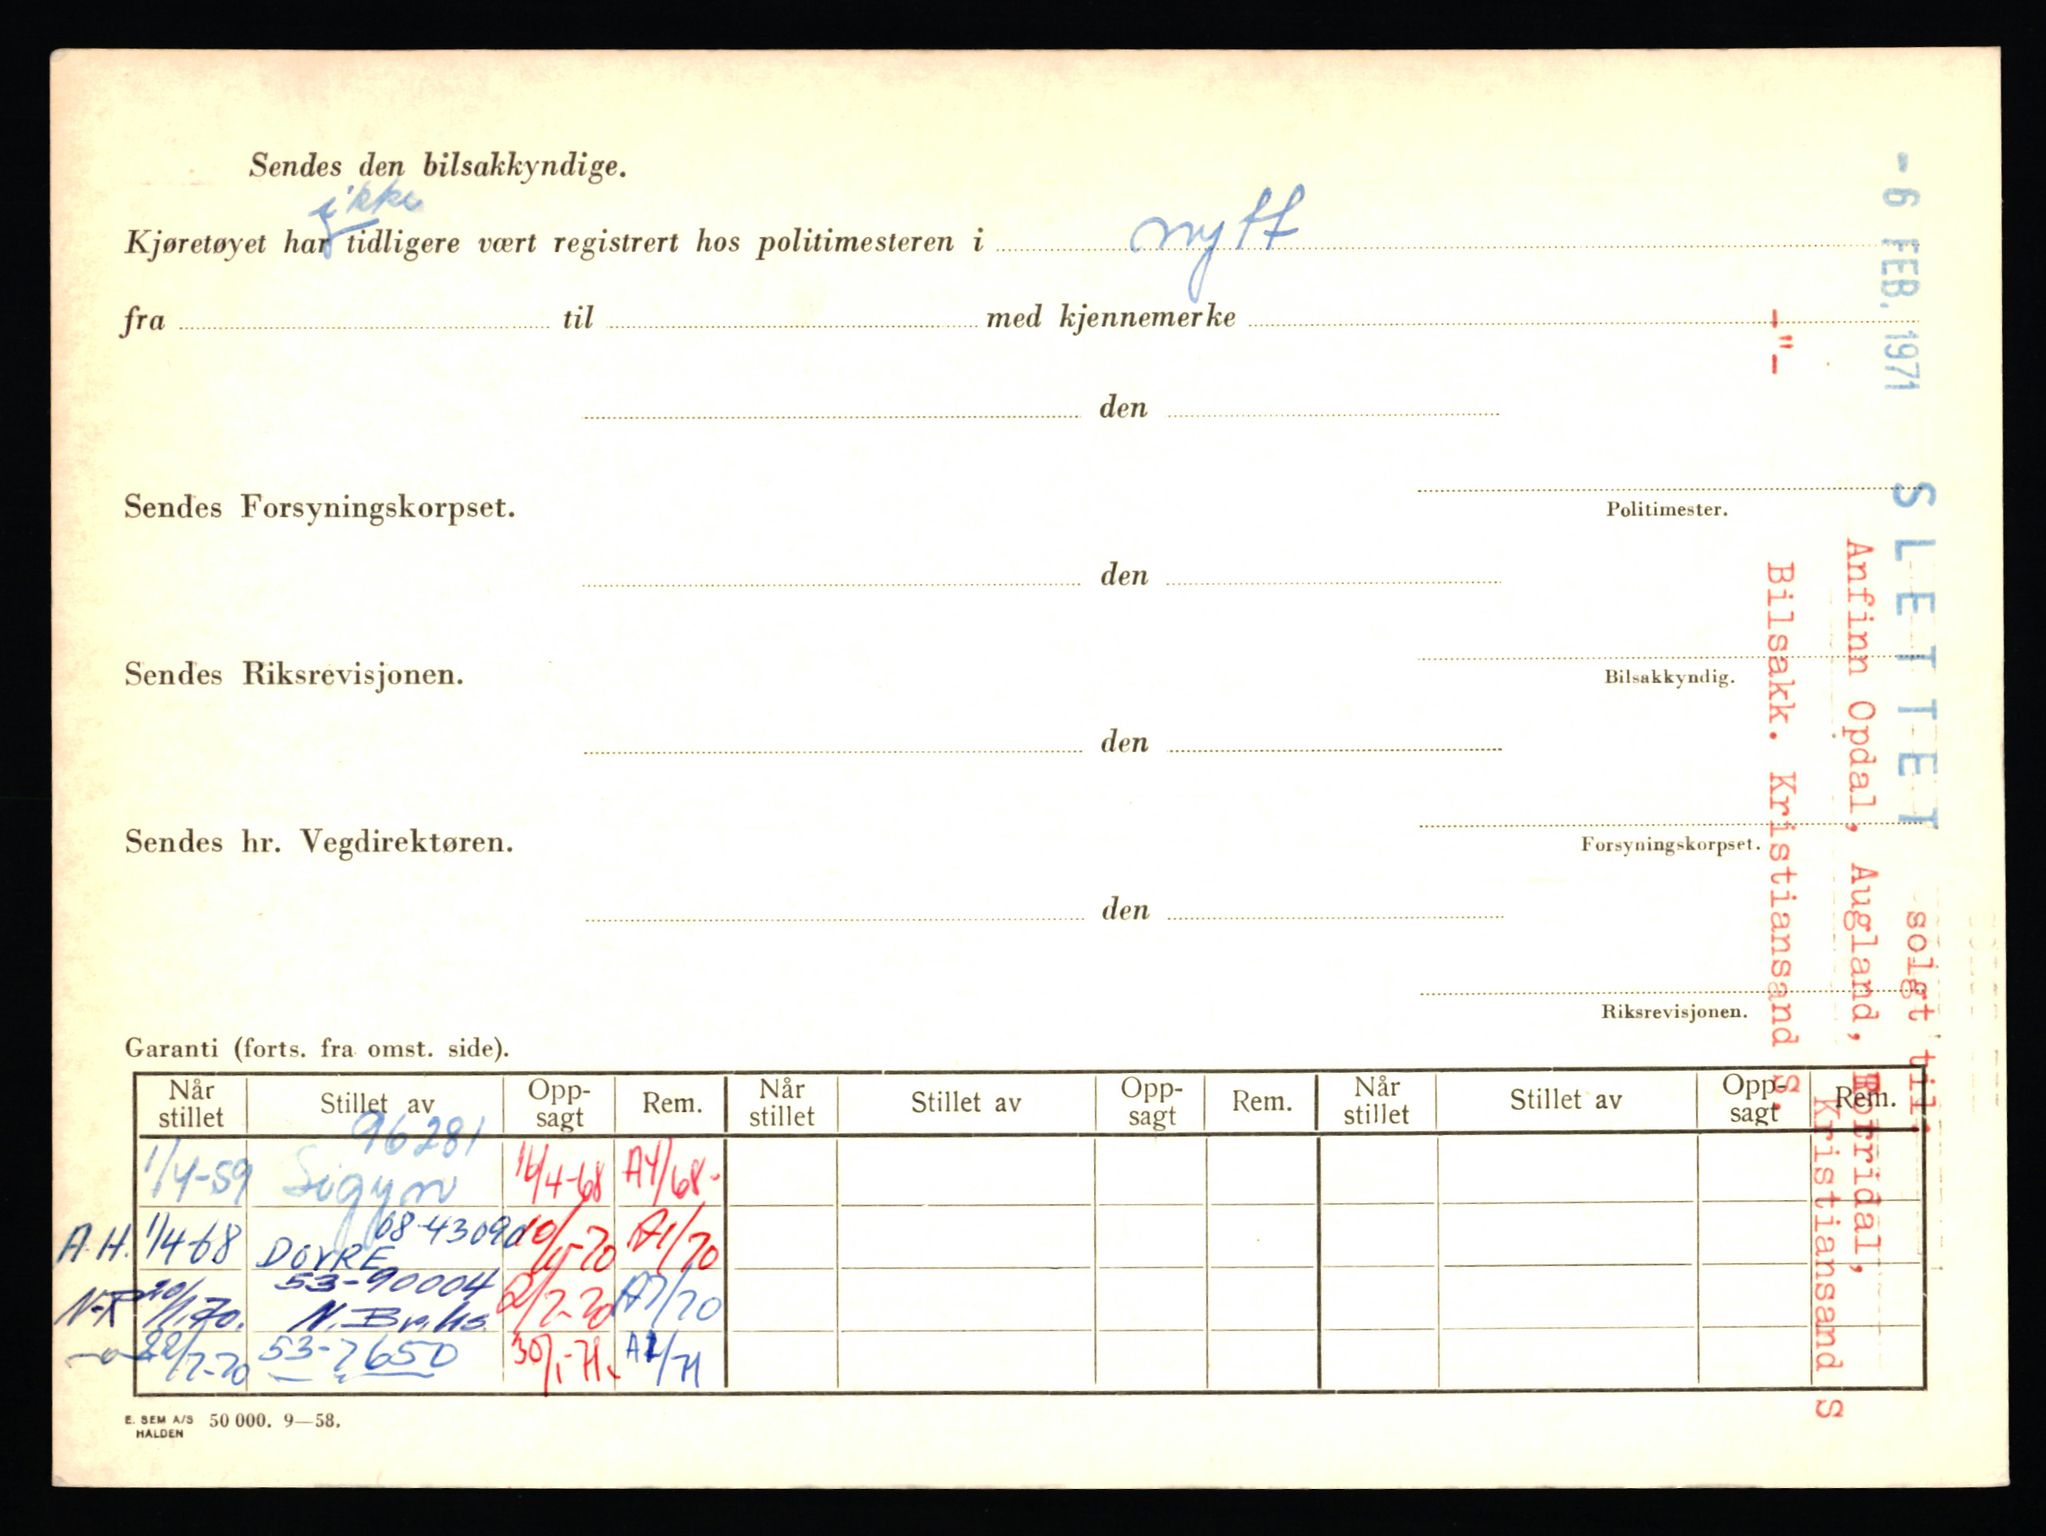 Sendes den bilsakkyndige.
ikke
Kjøretøyet har tidligere vært registrert hos politimesteren i nytt
fra til med kjennemerke
den
Politimester.
Sendes Forsyningskorpset.
den
Bilsakkyndig.
Sendes Riksrevisjonen.
den
Forsyningskorpset.
Sendes hr. Vegdirektøren.
den
Riksrevisjonen.
Garanti (forts. fra omst. side).
Når stillet Stillet av Opp-sagt Rem. Når stillet Stillet av Opp-sagt Rem. Når stillet Stillet av Opp-sagt Rem.
96281
1/4-59 Sigyn 16/4-68 A4/68-
08-4309
A.H. 1/4-68 DOVRE 70 A1/70
53-90004
N. 2/7-70 A7/70
22/7-70 53-7650 30/1-71. A1/71
E. SEM A/S HALDEN 50 000. 9—58.
- 6 FEB. 1971 SLETTET solgt til:
Anfinn Opdal, Augland, Torridal,
Kristiansand S
-"- Bilsakk. Kristiansand S.